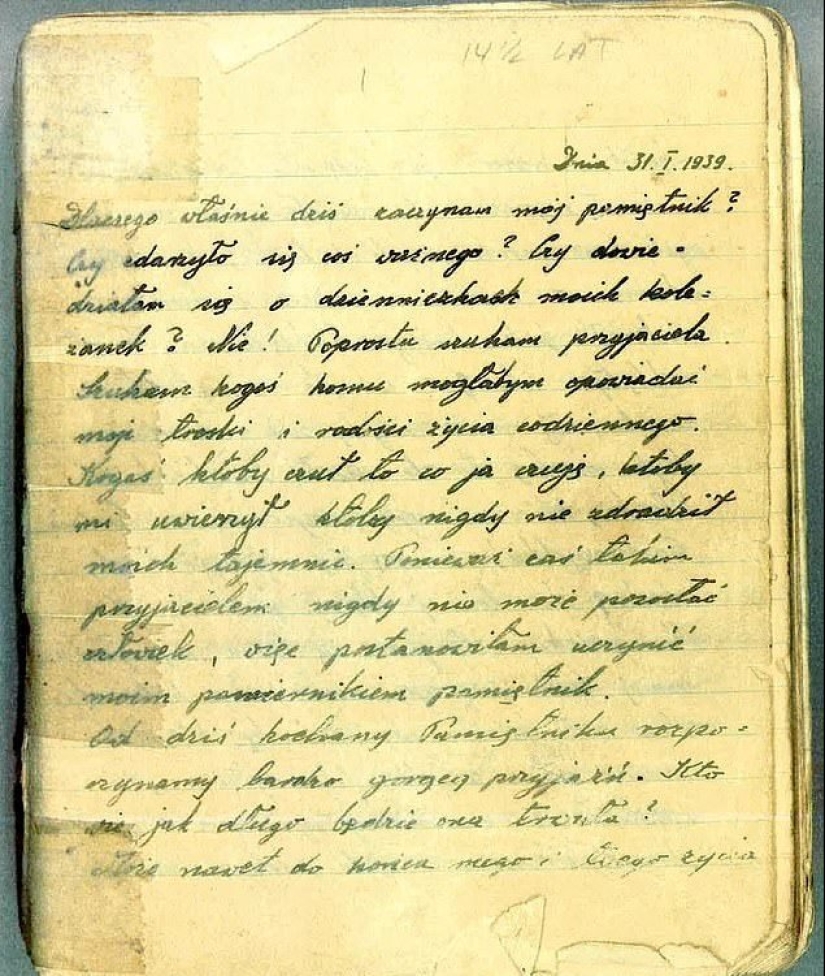 14 ½ LAT
Dnia 31.I.1939.
Dlaczego właśnie dziś zaczynam mój pamiętnik?
Czy zdarzyło się coś ważnego? Czy dowie-
działam się o dzienniczkach moich kole=
żanek? Nie! Poprostu szukam przyjaciela.
Szukam kogoś komu mogłabym opowiadać
moji troski i radości życia codziennego.
Kogoś ktoby czuł to co ja czuję, ktoby
mi uwierzył ktoby nigdy nie zdradził
moich tajemnic. Ponieważ zaś takim
przyjacielem nigdy nie może pozostać
człowiek, więc postanowiłam uczynić
moim powiernikiem pamiętnik.
Od dziś kochany Pamiętniku rozpo=
czynamy bardzo gorącą przyjaźń. Kto
wie jak długo będzie ona trwała?
Może nawet do końca mego i twego życia